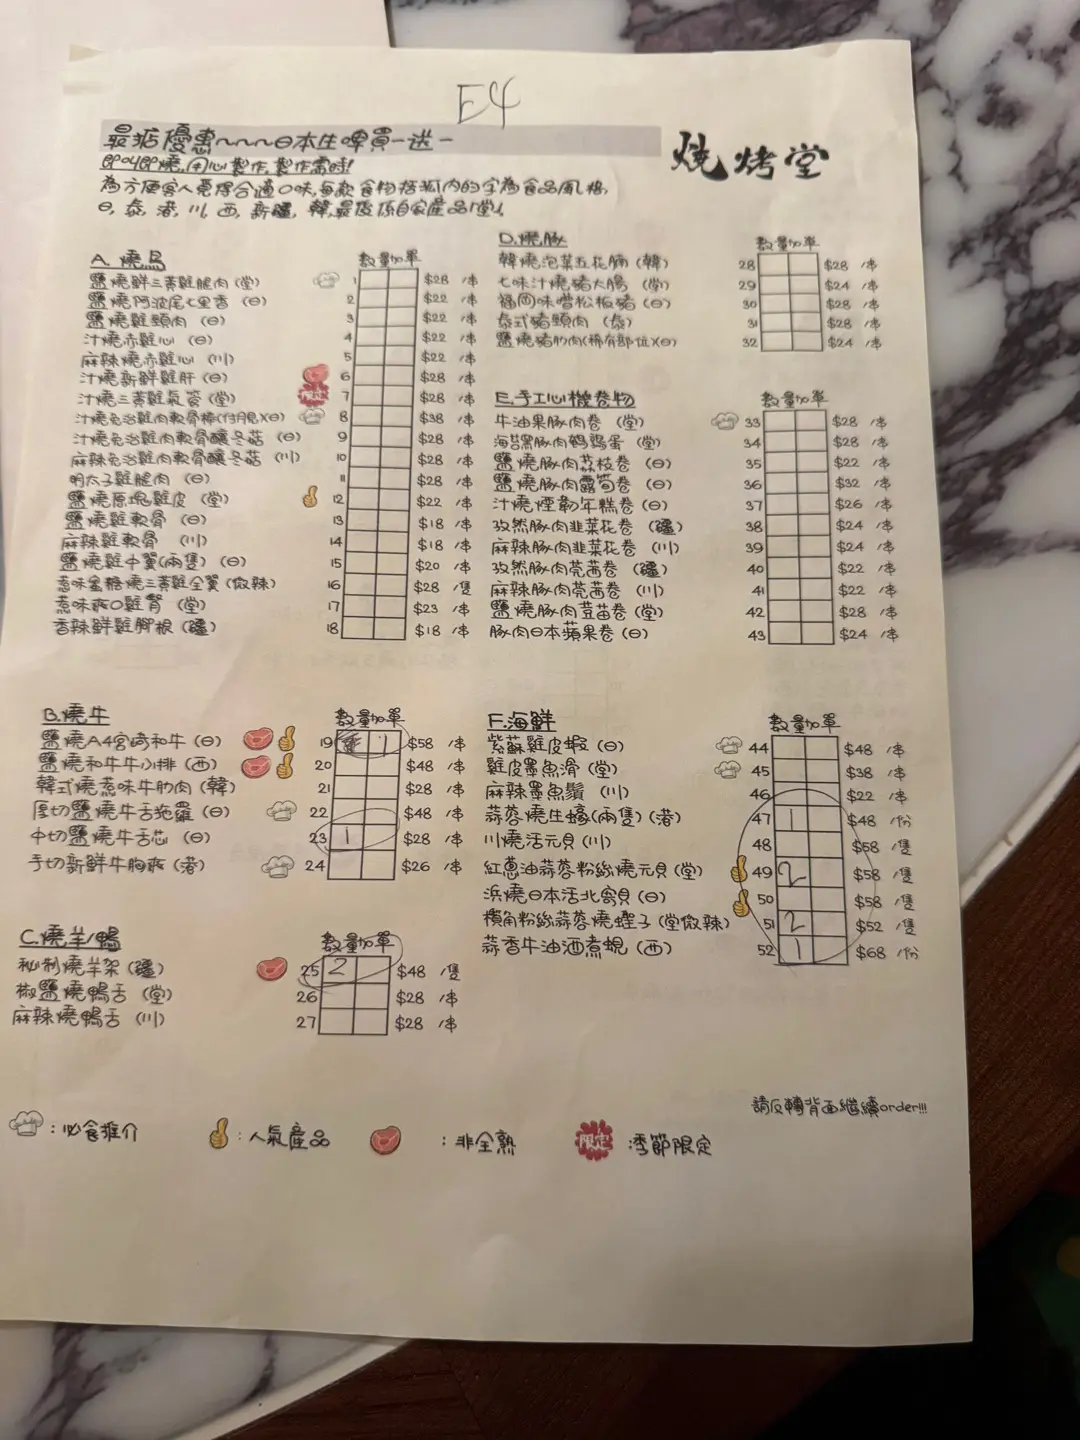 E4
最掂優惠～～～日本生啤買一送一
燒烤堂
即叫即燒,用心製作,製作需時!
為方便客人覓得合適口味,每款食物括弧內的字為食品風格,
日, 泰, 港, 川, 西, 新疆, 韓,最後係自家產品!堂!,
A. 燒鳥 數量加單
鹽燒鮮三黃雞腿肉(堂) 1 $28 /串
鹽燒阿波尾七里香(日) 2 $22 /串
鹽燒雞頸肉(日) 3 $22 /串
汁燒赤雞心(日) 4 $22 /串
麻辣燒赤雞心(川) 5 $22 /串
汁燒新鮮雞肝(日) 6 $28 /串
汁燒三黃雞氣管(堂) 限定 7 $28 /串
汁燒免治雞肉軟骨棒(付腍)(日) 8 $38 /串
汁燒免治雞肉軟骨釀冬菇(日) 9 $28 /串
麻辣免治雞肉軟骨釀冬菇(川) 10 $28 /串
明太子雞腿肉(日) 11 $28 /串
鹽燒原塊雞皮(堂) 12 $22 /串
鹽燒雞軟骨(日) 13 $18 /串
麻辣雞軟骨(川) 14 $18 /串
鹽燒雞中翼(兩隻)(日) 15 $20 /串
惹味蜜糖燒三黃雞全翼(微辣) 16 $28 /隻
惹味爽口雞腎(堂) 17 $23 /串
香辣鮮雞腳根(疆) 18 $18 /串
D.燒豚 數量加單
韓燒泡菜五花腩(韓) 28 $28 /串
七味汁燒豬大腸(堂) 29 $24 /串
福岡味噌松板豬(日) 30 $28 /串
泰式豬頸肉(泰) 31 $28 /串
鹽燒豬肋肉(稀有部位)(日) 32 $24 /串
E.手工心機卷物 數量加單
牛油果豚肉卷(堂) 33 $28 /串
海苔黑豚肉鵪鶉蛋(堂) 34 $28 /串
鹽燒豚肉荔枝卷(日) 35 $22 /串
鹽燒豚肉露筍卷(日) 36 $32 /串
汁燒煙韌年糕卷(日) 37 $26 /串
孜然豚肉韭菜花卷(疆) 38 $24 /串
麻辣豚肉韭菜花卷(川) 39 $24 /串
孜然豚肉芫茜卷(疆) 40 $22 /串
麻辣豚肉芫茜卷(川) 41 $22 /串
鹽燒豚肉荳苗卷(堂) 42 $28 /串
豚肉日本蘋果卷(日) 43 $24 /串
B.燒牛 數量加單
鹽燒A4宮崎和牛(日) 19 1 $58 /串
鹽燒和牛牛小排(西) 20 $48 /串
韓式燒蔥味牛肋肉(韓) 21 $28 /串
厚切鹽燒牛舌拖羅(日) 22 $48 /串
中切鹽燒牛舌芯(日) 23 1 $28 /串
手切新鮮牛胸爽(港) 24 $26 /串
C.燒羊/鴨 數量加單
秘制燒羊架(疆) 25 2 $48 /隻
椒鹽燒鴨舌(堂) 26 $28 /串
麻辣燒鴨舌(川) 27 $28 /串
F.海鮮 數量加單
紫蘇雞皮蝦(日) 44 $48 /串
雞皮墨魚滑(堂) 45 $38 /串
麻辣墨魚鬚(川) 46 $22 /串
蒜蓉燒生蠔(兩隻)(港) 47 1 $48 /份
川燒活元貝(川) 48 $58 /隻
紅蔥油蒜蓉粉絲燒元貝(堂) 49 2 $58 /隻
浜燒日本活北寄貝(日) 50 $58 /隻
欖角粉絲蒜蓉燒蟶子(堂微辣) 51 2 $52 /隻
蒜香牛油酒煮蜆(西) 52 1 $68 /份
請反轉背面繼續order!!!
: 必食推介
: 人氣產品
: 非全熟
限定 季節限定